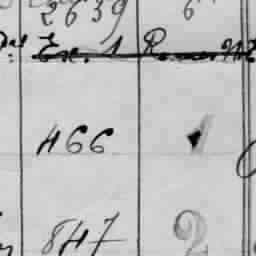 2639 6
Ex. 1 R
466 1
847 2